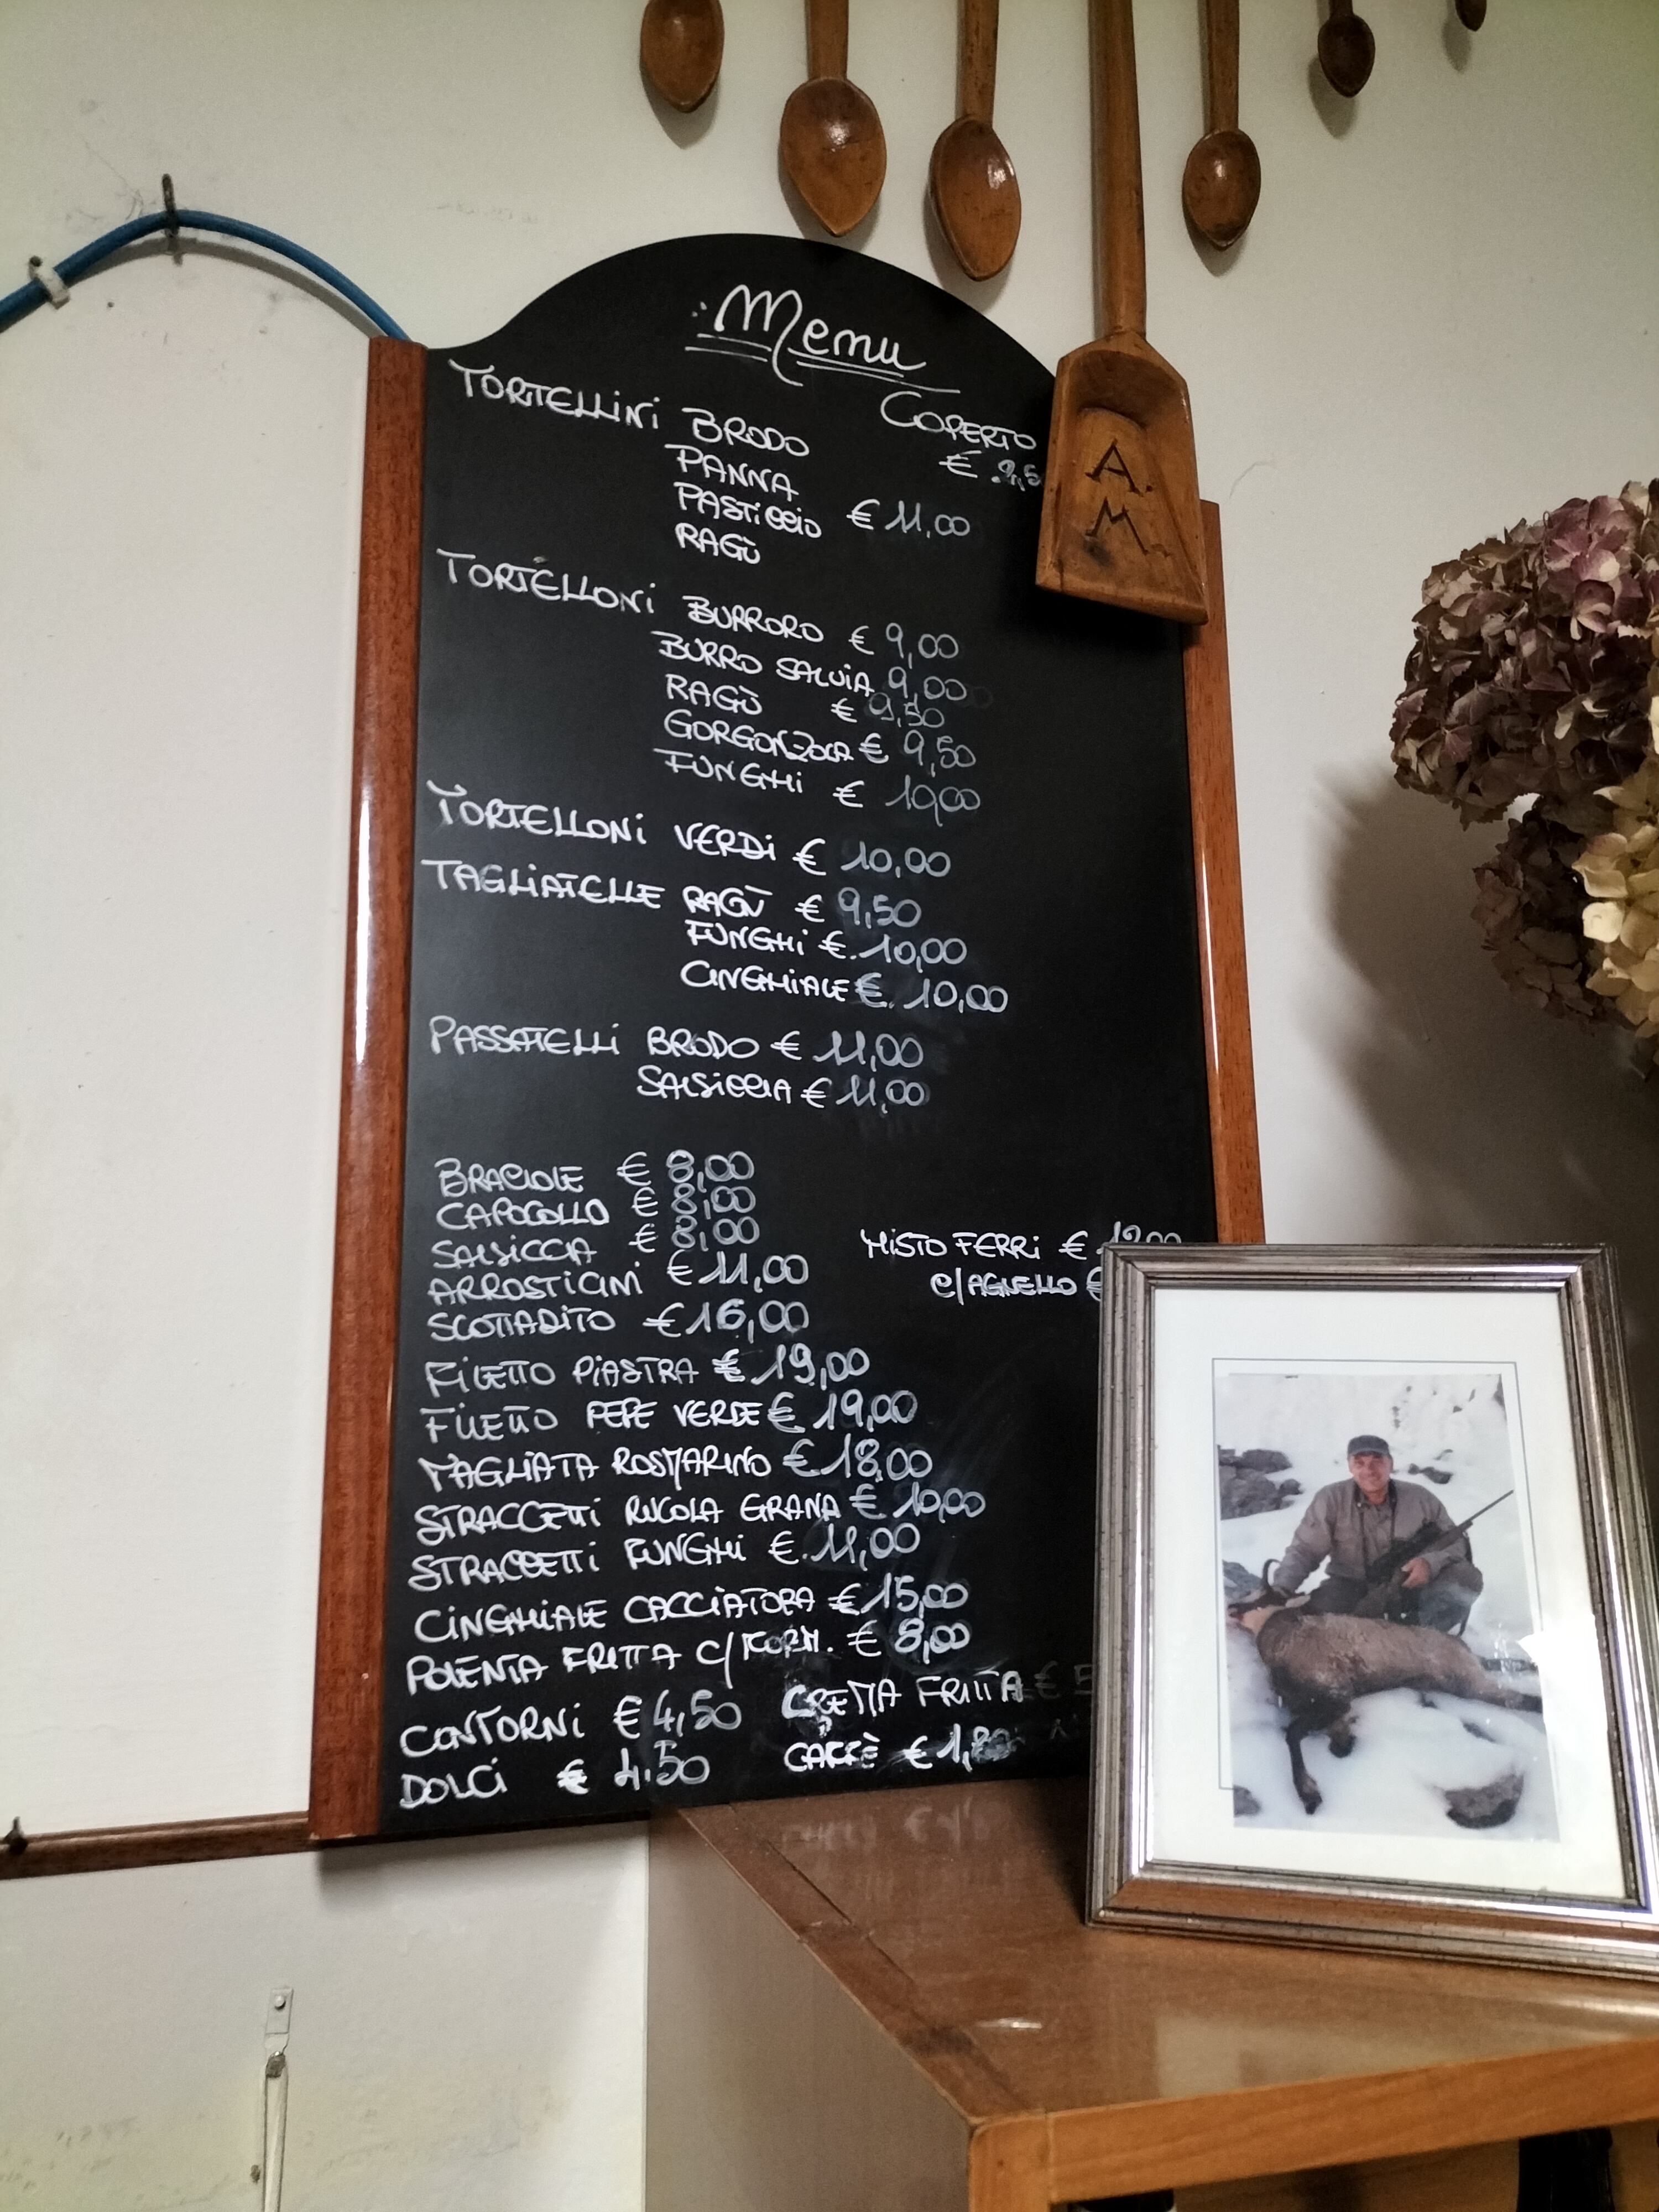 Menu
COPERTO
TORTELLINI BRODO
PANNA
PASTICCIO € 11,00
RAGÙ
TORTELLONI BURRORO € 9,00
BURRO SALVIA 9,00
RAGÙ € 9,50
GORGONZOLA € 9,50
FUNGHI € 10,00
TORTELLONI VERDI € 10,00
TAGLIATELLE RAGÙ € 9,50
FUNGHI € 10,00
CINGHIALE € 10,00
PASSATELLI BRODO € 11,00
SALSICCIA € 11,00
BRACIOLE € 8,00
CAPOCOLLO € 8,00
SALSICCIA € 8,00
ARROSTICINI € 11,00
SCOTTADITO € 16,00
MISTO FERRI €
C/AGNELLO €
FILETTO PIASTRA € 19,00
FILETTO PEPE VERDE € 19,00
TAGLIATA ROSMARINO € 18,00
STRACCETTI RUCOLA GRANA € 10,00
STRACCETTI FUNGHI € 11,00
CINGHIALE CACCIATORA € 15,00
POLENTA FRITTA C/FORM. € 8,00
CONTORNI € 4,50
DOLCI € 4,50
CREMA FRITTA € 5
CAFFÈ €
A.
M.